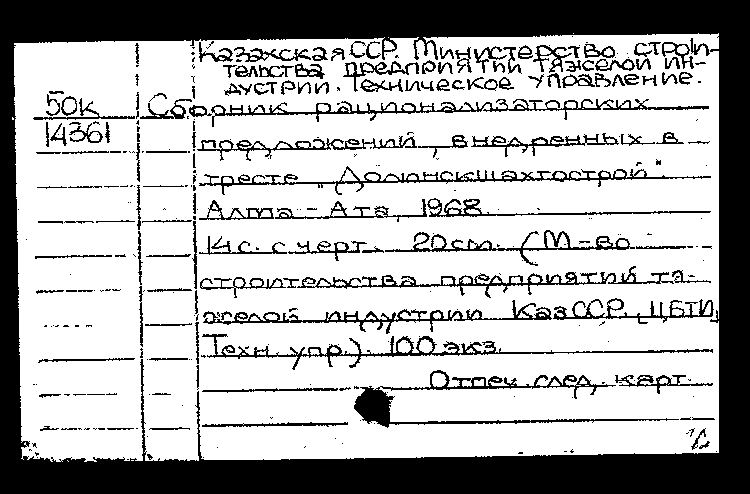 Казахская ССР. Министерство строи-
тельства предприятий тяжелой ин-
дустрии. Техническое управление.
50к Сборник рационализаторских
14361 предложений, внедренных в
тресте „Долинскшахтострой".
Алма-Ата, 1968.
14 с. с черт. 20 см. (М-во
строительства предприятий тя-
желой индустрии КазССР. ЦБТИ,
Техн. упр.). 100 экз.
Отпеч. след. карт.